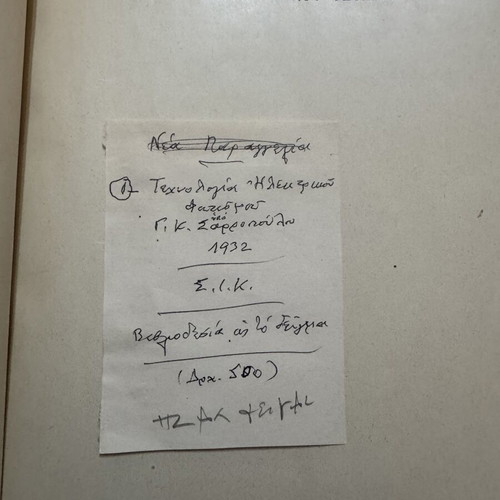 Νέα Παραγγελία
1) Τεχνολογία Ηλεκτρικού
Φωτισμού
ὑπὸ
Γ. Κ. Σαρροπούλου
1932
Σ.Ι.Κ.
Βιβλιοδεσία ὡς τό δεῖγμα
(Δρχ. 500)